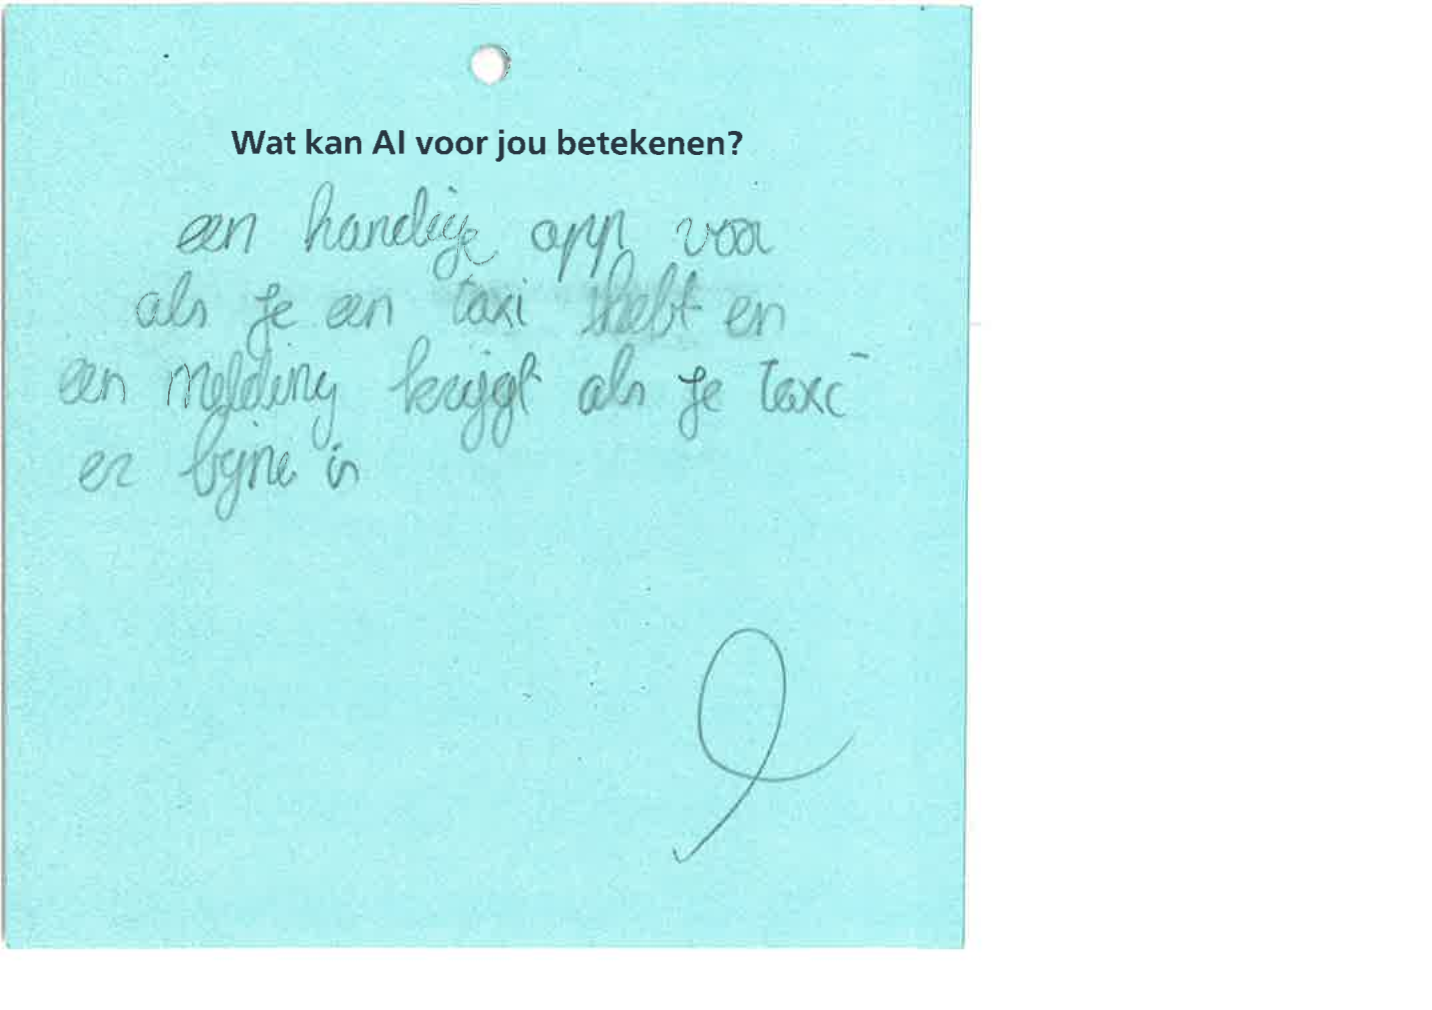 Wat kan AI voor jou betekenen?
een handige app voor
als je een taxi hebt en
een melding krijgt als je taxi
er bijne is